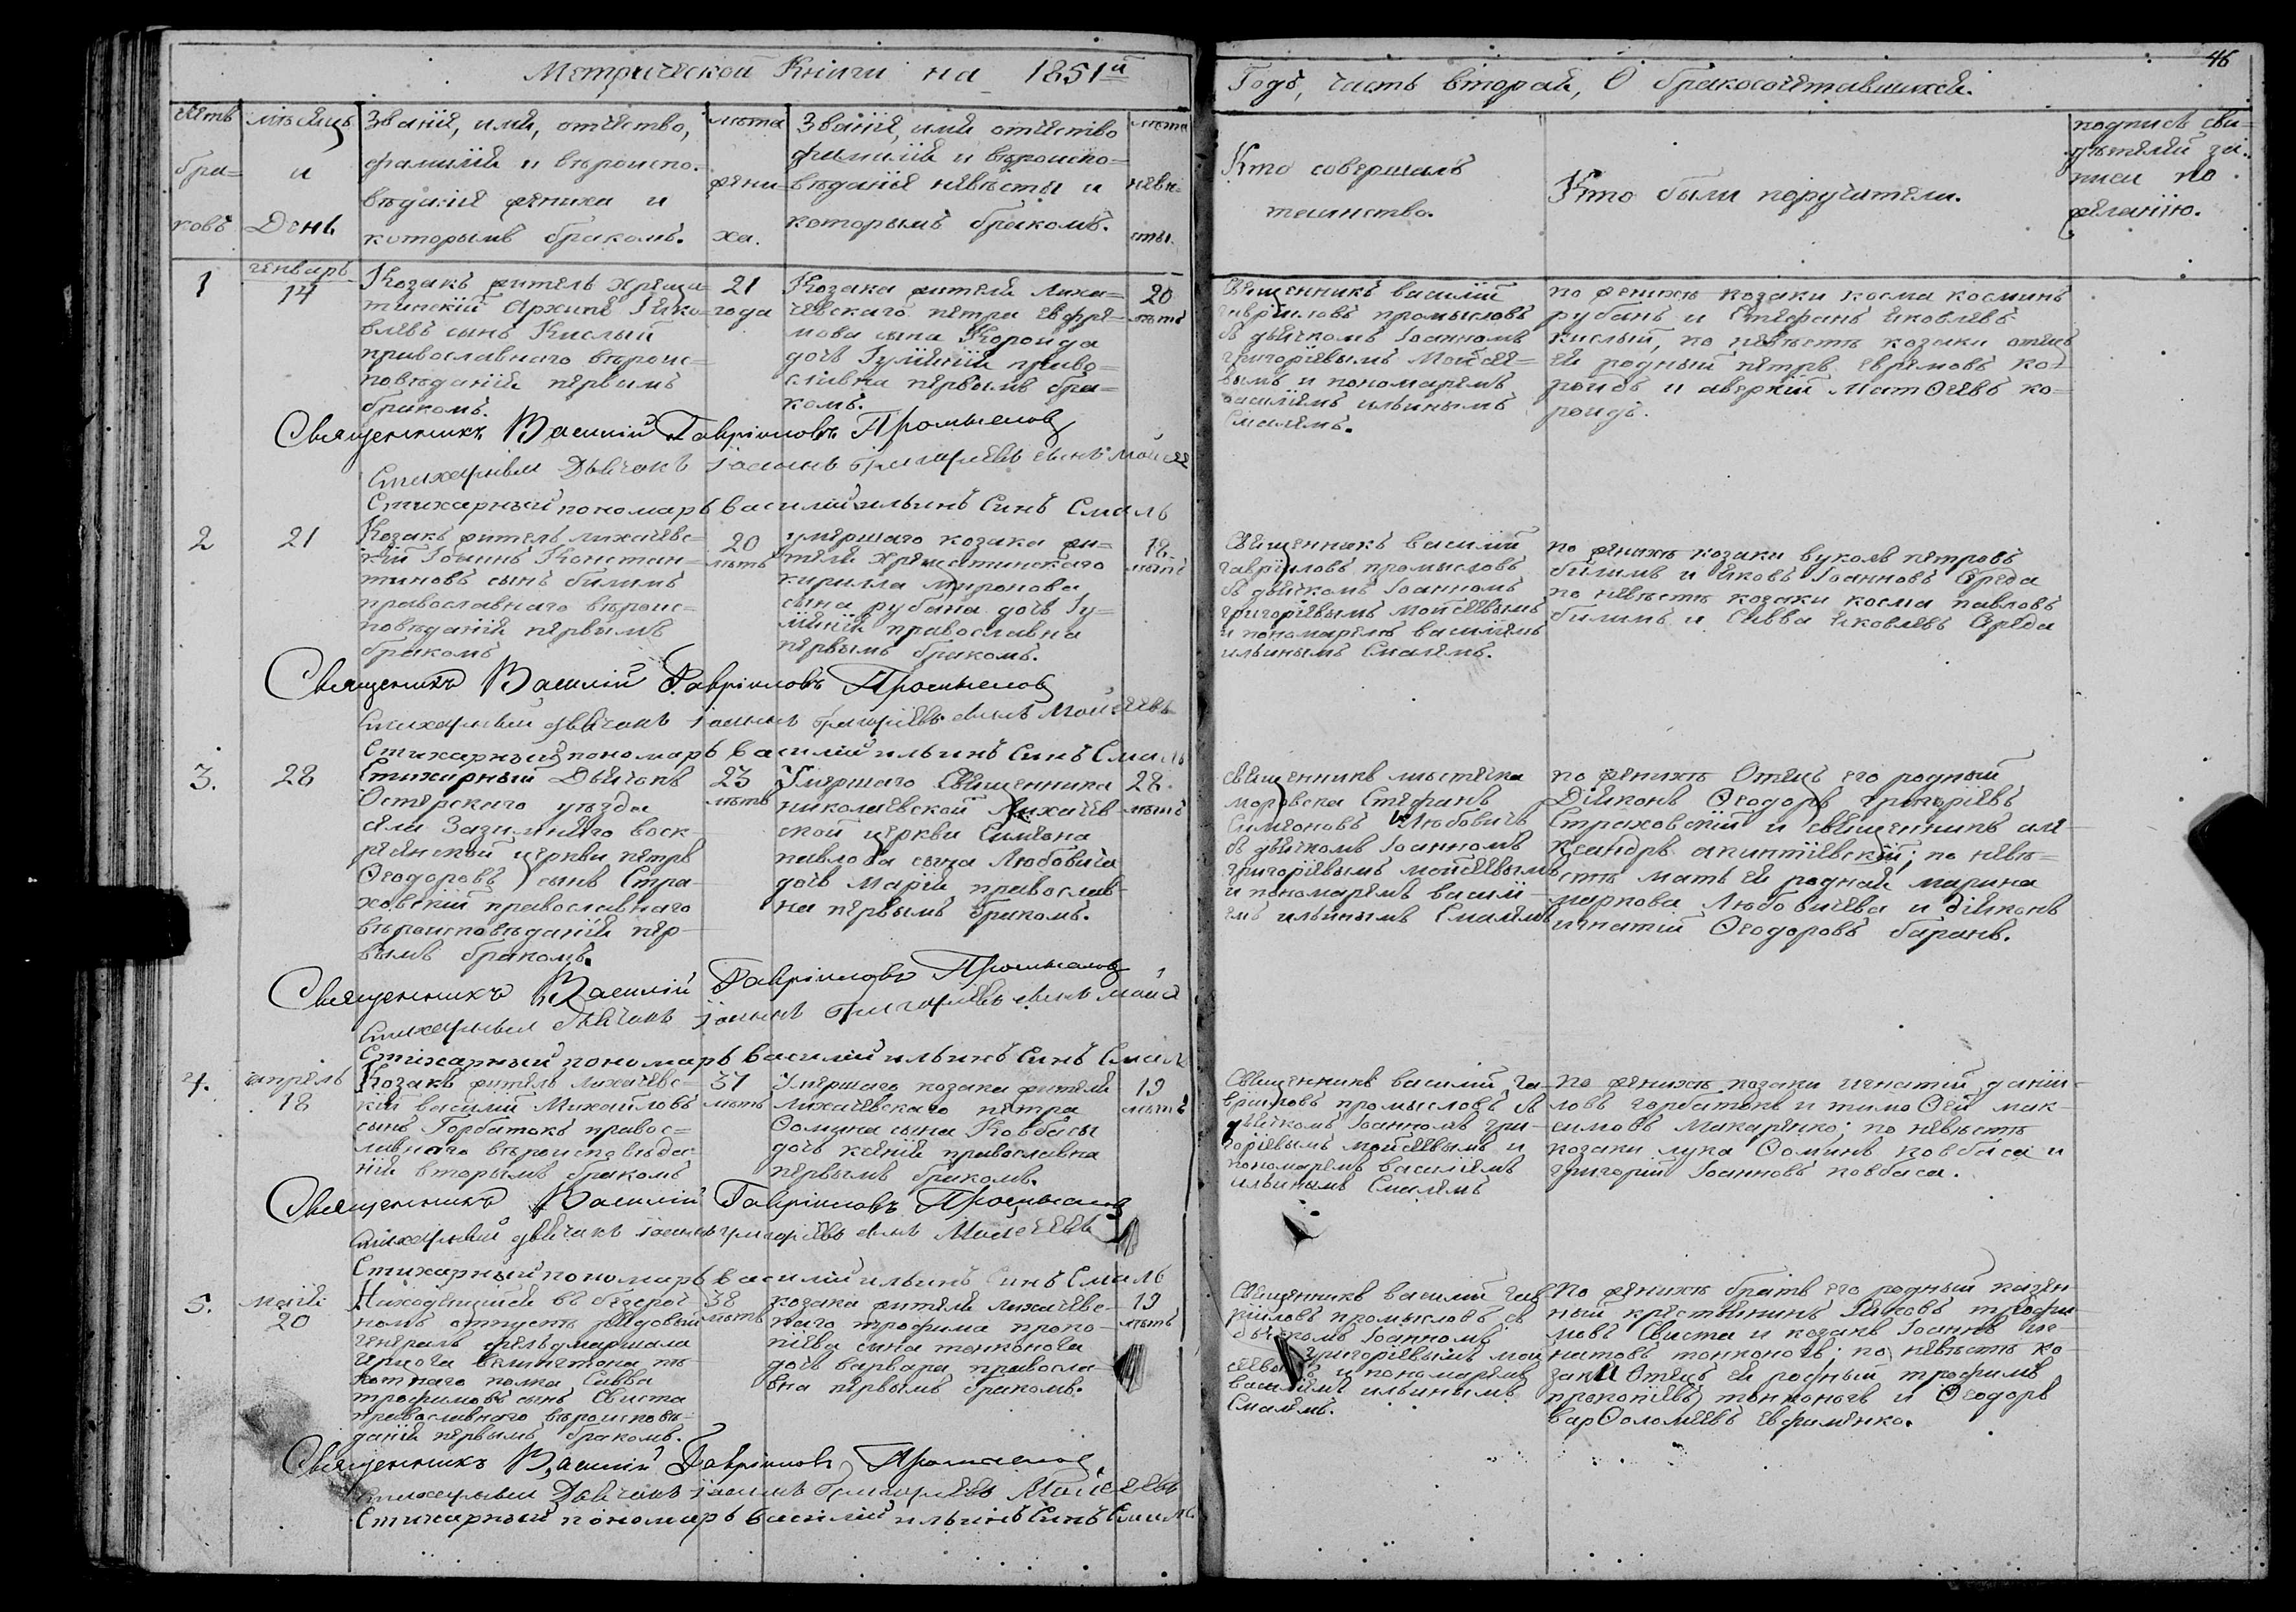 Метрической Книги на 1851й
Годъ, часть вторая, О бракосочетавшихся.
46
счетъ
бра=
ковъ
мѣсяцъ
и
День
Званіе, имя, отчество,
фамилія и вѣроиспо-
вѣданіе жениха и
которымъ бракомъ.
лѣта
жени=
ха.
Званіе, имя отчество
фамилія и вѣроиспо=
вѣданіе невѣсты и
которымъ бракомъ.
лѣта
невѣ-
сты.
Кто совершалъ
таинство.
Кто были поручители.
подпись сви=
дѣтелей за-
писи по
желанію.
1
генварь
14
Козакъ житель Хреща=
тинскій Архипъ Яко=
влевъ сынъ Кислый
православнаго вѣроис=
повѣданія первымъ
бракомъ.
21
года
Козака жителя Лиха=
чевскаго Петра Евфре=
мова сына Короида
дочь Гуліанія право=
славна первымъ бра=
комъ.
20
лѣтъ
Священникъ василій
гавріиловъ промысловъ
съ дьячкомъ Іоанномъ
григоріевымъ Мойсее=
вымъ и пономаремъ
василіемъ ильинымъ
Смалемъ.
по женихѣ козаки косма косминъ
рубанъ и Стефанъ яковлевъ
кислый, по невѣстѣ козаки отецъ
ея родный петръ евремовъ ко=
роидъ и аверкій матѳеевъ ко=
роидъ.
Священникъ Василій Гавріиловъ Промысловъ
Стихарный Дьячокъ Іоаннъ Григоріевъ сынъ Мойсее
Стихарный пономаръ василій ильинъ Синъ Смаль
2
21
Козакъ житель лихачевс=
кій Іоаннъ Констан=
тиновъ сынъ билимъ
православнаго вѣроис=
повѣданія первымъ
бракомъ
20
лѣтъ
умершаго козака жи=
теля Хрещатинскаго
кирилла миронова
сына рубана дочь Гу=
ліанія православна
первымъ бракомъ.
18.
лѣтъ
Священникъ василій
гавріиловъ промысловъ
съ дьячкомъ Іоанномъ
григоріевымъ мойсеевымъ
и пономаремъ василіемъ
ильинымъ Смалемъ.
по женихѣ козаки вуколъ петровъ
билимъ и яковъ Іоанновъ Среда
по невѣстѣ козаки косма павловъ
билимъ и Савва яковлевъ Среда
Священникъ Василій Гавріиловъ Промысловъ
Стихарный дьячокъ Іоаннъ Григоріевъ сынъ Мойсеевъ
Стихарный пономаръ василій ильинъ Синъ Смаль
3.
28
Стихарный Дьячокъ
Остерскаго уѣзда
села Зазимняго воск-
ресенской церкви петръ
Ѳеодоровъ сынъ Стра-
ховскій православнаго
вѣроисповѣданія пер-
вымъ бракомъ.
23
лѣтъ
Умершаго Священника
николаевской Лихачев-
ской церкви Симеона
павлова сына Любовича
дочь Марія православ-
на первымъ бракомъ.
28.
лѣтъ
священникъ мѣстечка
моровска Стефанъ
Симеоновъ Любовичъ
съ дьячкомъ Іоанномъ
григоріевымъ мойсеевымъ
и пономаремъ василі-
емъ ильинымъ Смалемъ
по женихѣ Отецъ его родный
Діяконъ Ѳеодоръ григоріевъ
Страховскій и священникъ але-
ксандръ акинтіевскій; по невѣ=
стѣ мать ея родная марина
маркова Любовичева и діяконъ
игнатій Ѳеодоровъ баранъ.
Священникъ Василій Гавріиловъ Промысловъ
Стихарный Дьячокъ Іоаннъ Григоріевъ сынъ мойсе
Стихарный пономаръ василій ильинъ Синъ Смаль
4.
апрель
18
Козакъ житель лихачевс=
кій василій Михайловъ
сынъ Горбатокъ правос=
лавнаго вѣроисповѣда-
нія вторымъ бракомъ
37
лѣтъ
Умершаго козака жителя
лихачевскаго петра
Ѳомина сына Ковбасы
дочь ксенія православна
первымъ бракомъ.
19
лѣтъ
Священникъ василій га-
вриловъ промысловъ съ
дьячкомъ Іоанномъ гри-
горіевымъ мойсеевымъ и
пономаремъ василіемъ
ильинымъ Смалемъ
по женихѣ козаки игнатій даніи-
ловъ горбатокъ и тимоѲей мак-
симовъ макаренко; по невѣстѣ
козаки лука Ѳоминъ ковбаса и
григорій Іоанновъ ковбаса.
Священникъ Василій Гавріиловъ Промысловъ
Стихарный дьячокъ Іоаннъ григоріевъ сынъ Мойсеевъ
Стихарный пономаръ василій ильинъ Синъ Смаль
5.
маія
20
Находящійся въ безсроч-
номъ отпускѣ рядовый
генералъ фельдмаршала
герцога велингтона пѣ-
хотнаго полка Савва
трофимовъ сынъ Свиста
православнаго вѣроисповѣ-
данія первымъ бракомъ.
38
лѣтъ
козака жителя лихачевс-
каго трофима проко-
піева сина тонконога
дочь варвара правосла-
вна первымъ бракомъ.
19
лѣтъ
Священникъ василій гав-
ріиловъ промысловъ съ
дьячкомъ Іоанномъ
григоріевымъ мой
и пономаремъ
василіемъ ильинымъ
Смалемъ.
По женихѣ братъ его родный казен-
ный крестьянинъ Яковъ трофи-
мовъ Свиста и козакъ Іоаннъ иг-
натовъ тонконогъ; по невѣстѣ ко-
заки Отецъ ея родный трофимъ
прокопіевъ тонконогъ и Ѳеодоръ
варѲоломеевъ евфименко.
Священникъ Василій Гавріиловъ Промысловъ
Стихарный Дьячокъ Іоаннъ Григоріевъ Мойсеевъ
Стихарный пономаръ василій ильинъ Синъ Смаль